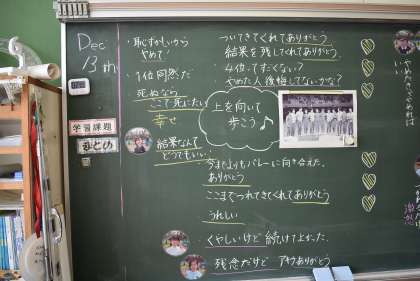 Dec
13th
学習課題
まとめ
・恥ずかしいから
やめて!
・1位同然だ
死ぬなら
ここで死にたい
幸せ
結果なんて
どうでもいい!
ついてきてくれてありがとう
結果を残してくれてありがとう
・4位ってすごくない?
やめた人後悔してないかな?
上を向いて
歩こう♪
今までよりもバレーに向き合えた。
ありがとう
ここまでつれてきてくれてありがとう
うれしい
くやしいけど続けてよかった。
残念だけど ありがとう